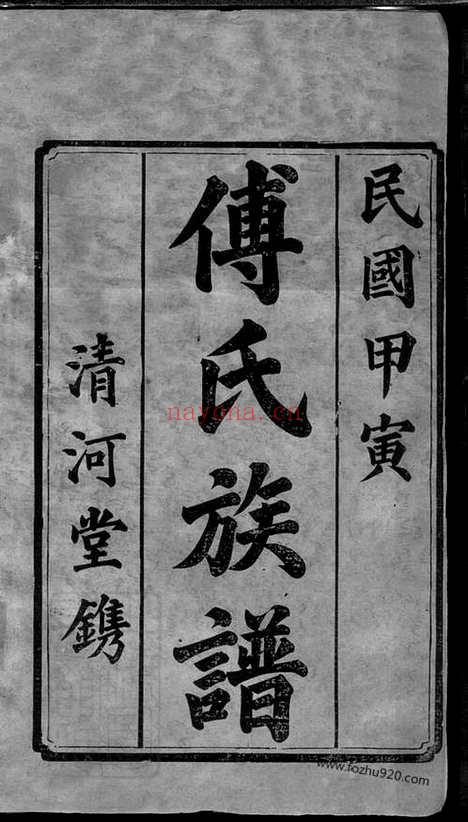 民國甲寅
傅氏族譜
清河堂鐫
nayona.cn
www.fozhu920.com